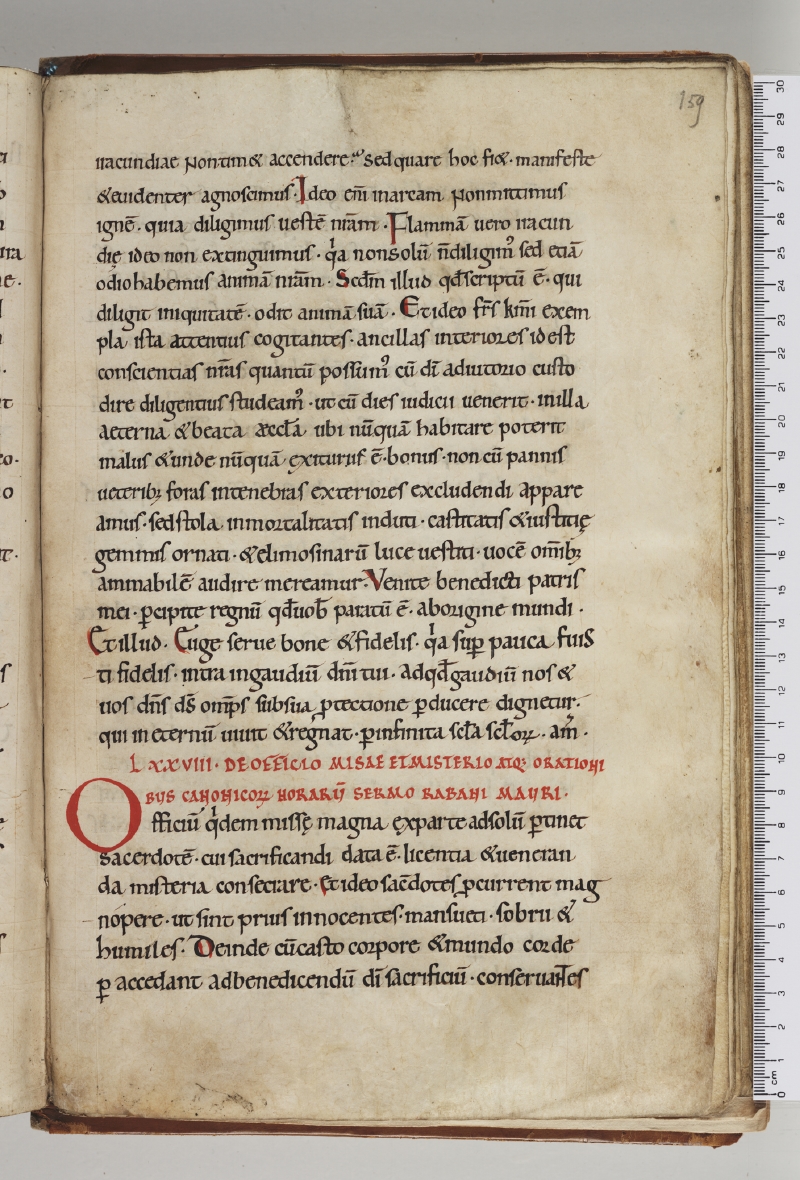 159
iracundiae pontim& accendere? Sed quare hoc fi&. manifeste
&euidenter agnoscimus. Ideo eni̅ inaream ponimittimus
igne̅. quia diligimus ueste̅ nr̅am. Flamma̅ uero iracun
die̜ ideo non extinguimus. qa nonsolu̅ n̅diligim᾽ sed etia̅
odiohabemus anima̅ nr̅am. Scdm̅ illud qd̅scriptu̅ e̅. qui
diligit iniquitate̅. odit anima̅ sua̅. Etideo fr̅s kmi̅ exem
pla ista attentius cogitantes. ancillas interiores idest
conscientias nr̅as quantu̅ possum᾽ cu̅ di̅ adiutorio custo
dire diligentius studeam᾽. ut cu̅ dies iudicii uenerit. inilla
aeterna &beata aeccl̅a. ubi nu̅qua̅ habitare poterit
malus &unde nu̅qua̅ e̜xiturus e̅. bonus. non cu̅ pannis
ueterib; foras intenebras exteriores excludendi appare
amus. sedstola inmortalitatis induti. castitatis &iustitie̜
gemmis ornati. &elimosinaru̅ luce uestiti. uoce̅ om̅ib;
ammabile̅ audire mereamur. Venite benedicti patris
mei. ꝑcipite regnu̅ qd̅uob̅ paratu̅ e̅. aborigine mundi.
Et illud. Euge serue bone &fidelis. qa suꝑ pauca fuis
ti fidelis. intra ingaudiu̅ dn̅i tui. Adqd̅gaudiu̅ nos &
uos dn̅s ds̅ omp̅s subsua ꝓtectione ꝑducere dignetur.
qui in eternu̅ uiuit &regnat. ꝑinfinita scl̅a scl̅oꝝ. am̅.
LXXVIII. DE OFFICIO MISAE ETMISTERIO ATQ; ORATIONI
BVS CANONICOꝜ HORARV̅ SERMO RABANI MAVRI.
Officiu̅ qdem misse̜ magna e̜xparte adsolu̅ ꝑtinet
sacerdote̅. cui sacrificandi data e̅. licentia &ueneran
da misteria consecrare. Et ideo sac̅dotes ꝓcurrent mag
nopere. ut sint prius innocentes. mansueti. sobrii &
humiles. Deinde cu̅casto corpore &mundo corde
ꝑ accedant adbenedicendu̅ di̅ sacrificiu̅. conseruantes